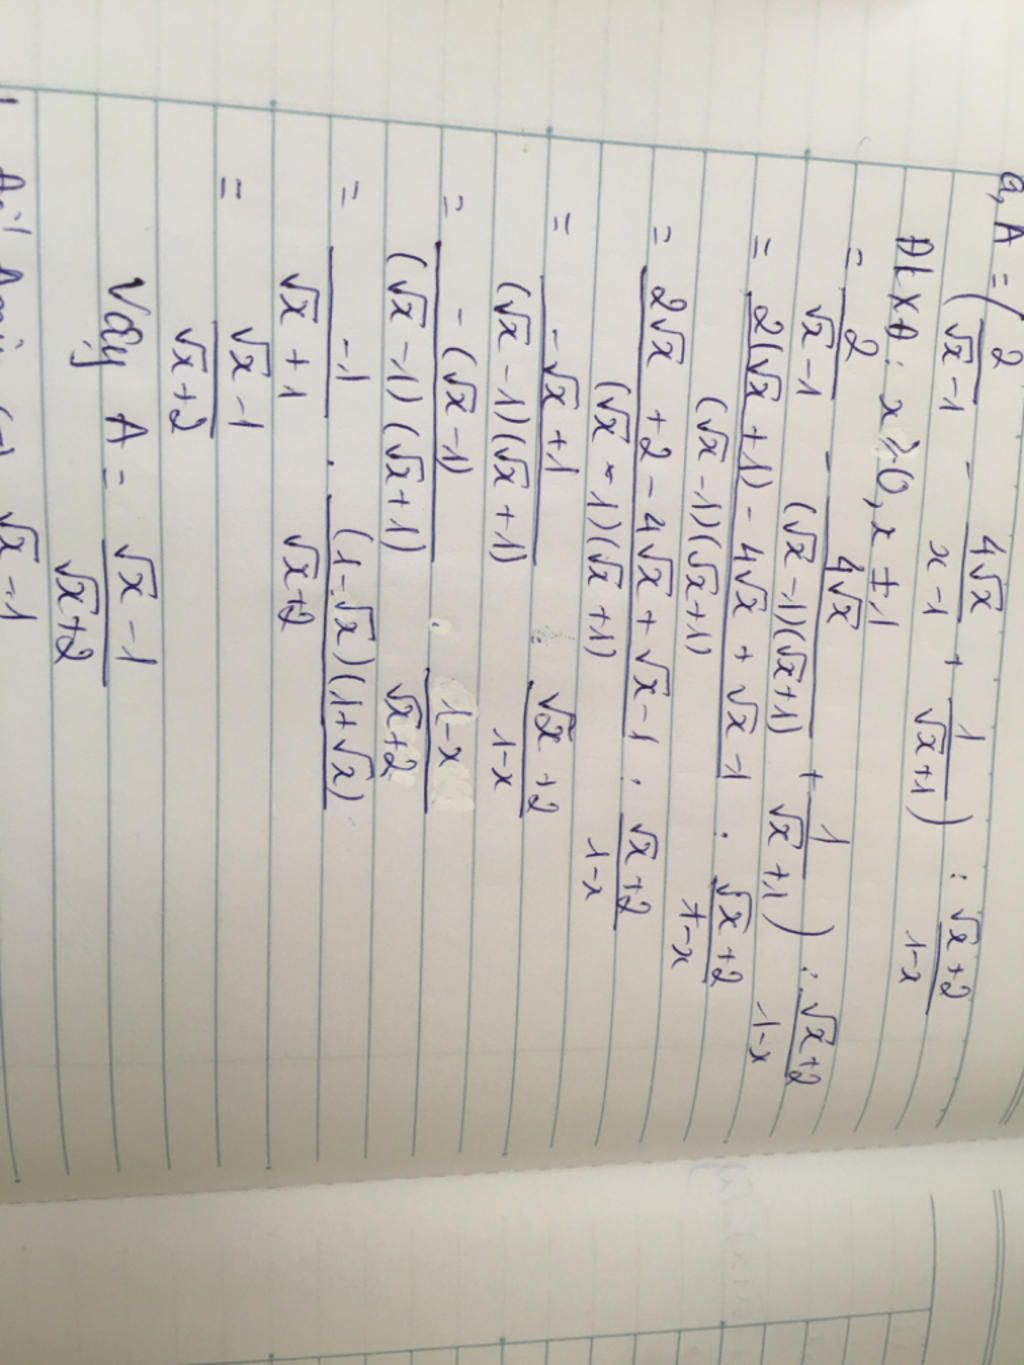 a, A = ( 2/(√x - 1) - 4√x/(x - 1) + 1/(√x + 1) ) : (√x + 2)/(1 - x)
ĐKXĐ: x ≥ 0, x ≠ 1
= 2/(√x - 1) - 4√x/((√x - 1)(√x + 1)) + 1/(√x + 1) ) : (√x + 2)/(1 - x)
= (2(√x + 1) - 4√x + √x - 1)/((√x - 1)(√x + 1)) : (√x + 2)/(1 - x)
= (2√x + 2 - 4√x + √x - 1)/((√x - 1)(√x + 1)) : (√x + 2)/(1 - x)
= (-√x + 1)/((√x - 1)(√x + 1)) : (√x + 2)/(1 - x)
= -(√x - 1)/((√x - 1)(√x + 1)) . (1 - x)/(√x + 2)
= -1/(√x + 1) . (1 - √x)(1 + √x)/(√x + 2)
= (√x - 1)/(√x + 2)
Vậy A = (√x - 1)/(√x + 2)
√x - 1